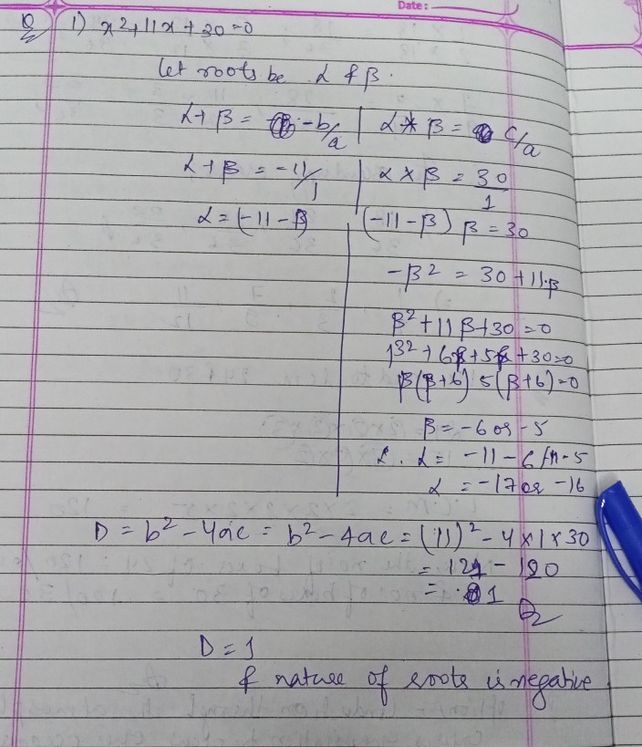 Date:
Q 1) x²+11x+30=0
Let roots be α & β.
α+β = -b/a | α*β = c/a
α+β = -11/1 | α×β = 30/1
α=(-11-β) | (-11-β)β=30
-β² = 30+11β
β²+11β+30=0
β²+6β+5β+30=0
β(β+6) 5(β+6)=0
β=-6 or -5
α = -11-6 -5
α = -17 or -16
D = b²-4ac = b²-4ac = (11)²-4×1×30
= 121-120
= 1
D=1
& nature of roots is negative.